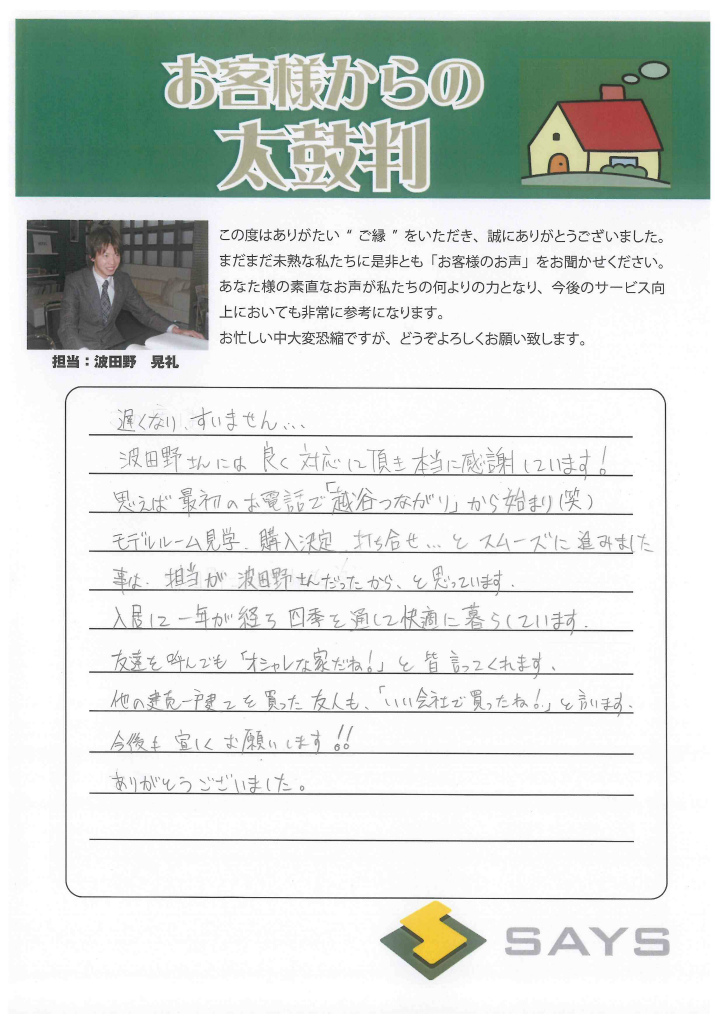 お客様からの
太鼓判
この度はありがたい“ご縁”をいただき、誠にありがとうございました。
まだまだ未熟な私たちに是非とも「お客様のお声」をお聞かせください。
あなた様の素直なお声が私たちの何よりの力となり、今後のサービス向
上においても非常に参考になります。
お忙しい中大変恐縮ですが、どうぞよろしくお願い致します。
担当：波田野 晃礼
遅くなり、すいません...
波田野さんには良く対応して頂き本当に感謝しています!
思えば最初のお電話で「越谷つながり」から始まり(笑)
モデルルーム見学、購入決定、打ち合せ...とスムーズに進みました
事は、担当が波田野さんだったから、と思っています.
入居して一年が経ち四季を通して快適に暮らしています.
友達を呼んでも「オシャレな家だね!」と皆言ってくれます、
他の建売一戸建てを買った友人も、「いい会社で買ったね!」と言います.
今後も宜しくお願いします!!
ありがとうございました。
SAYS